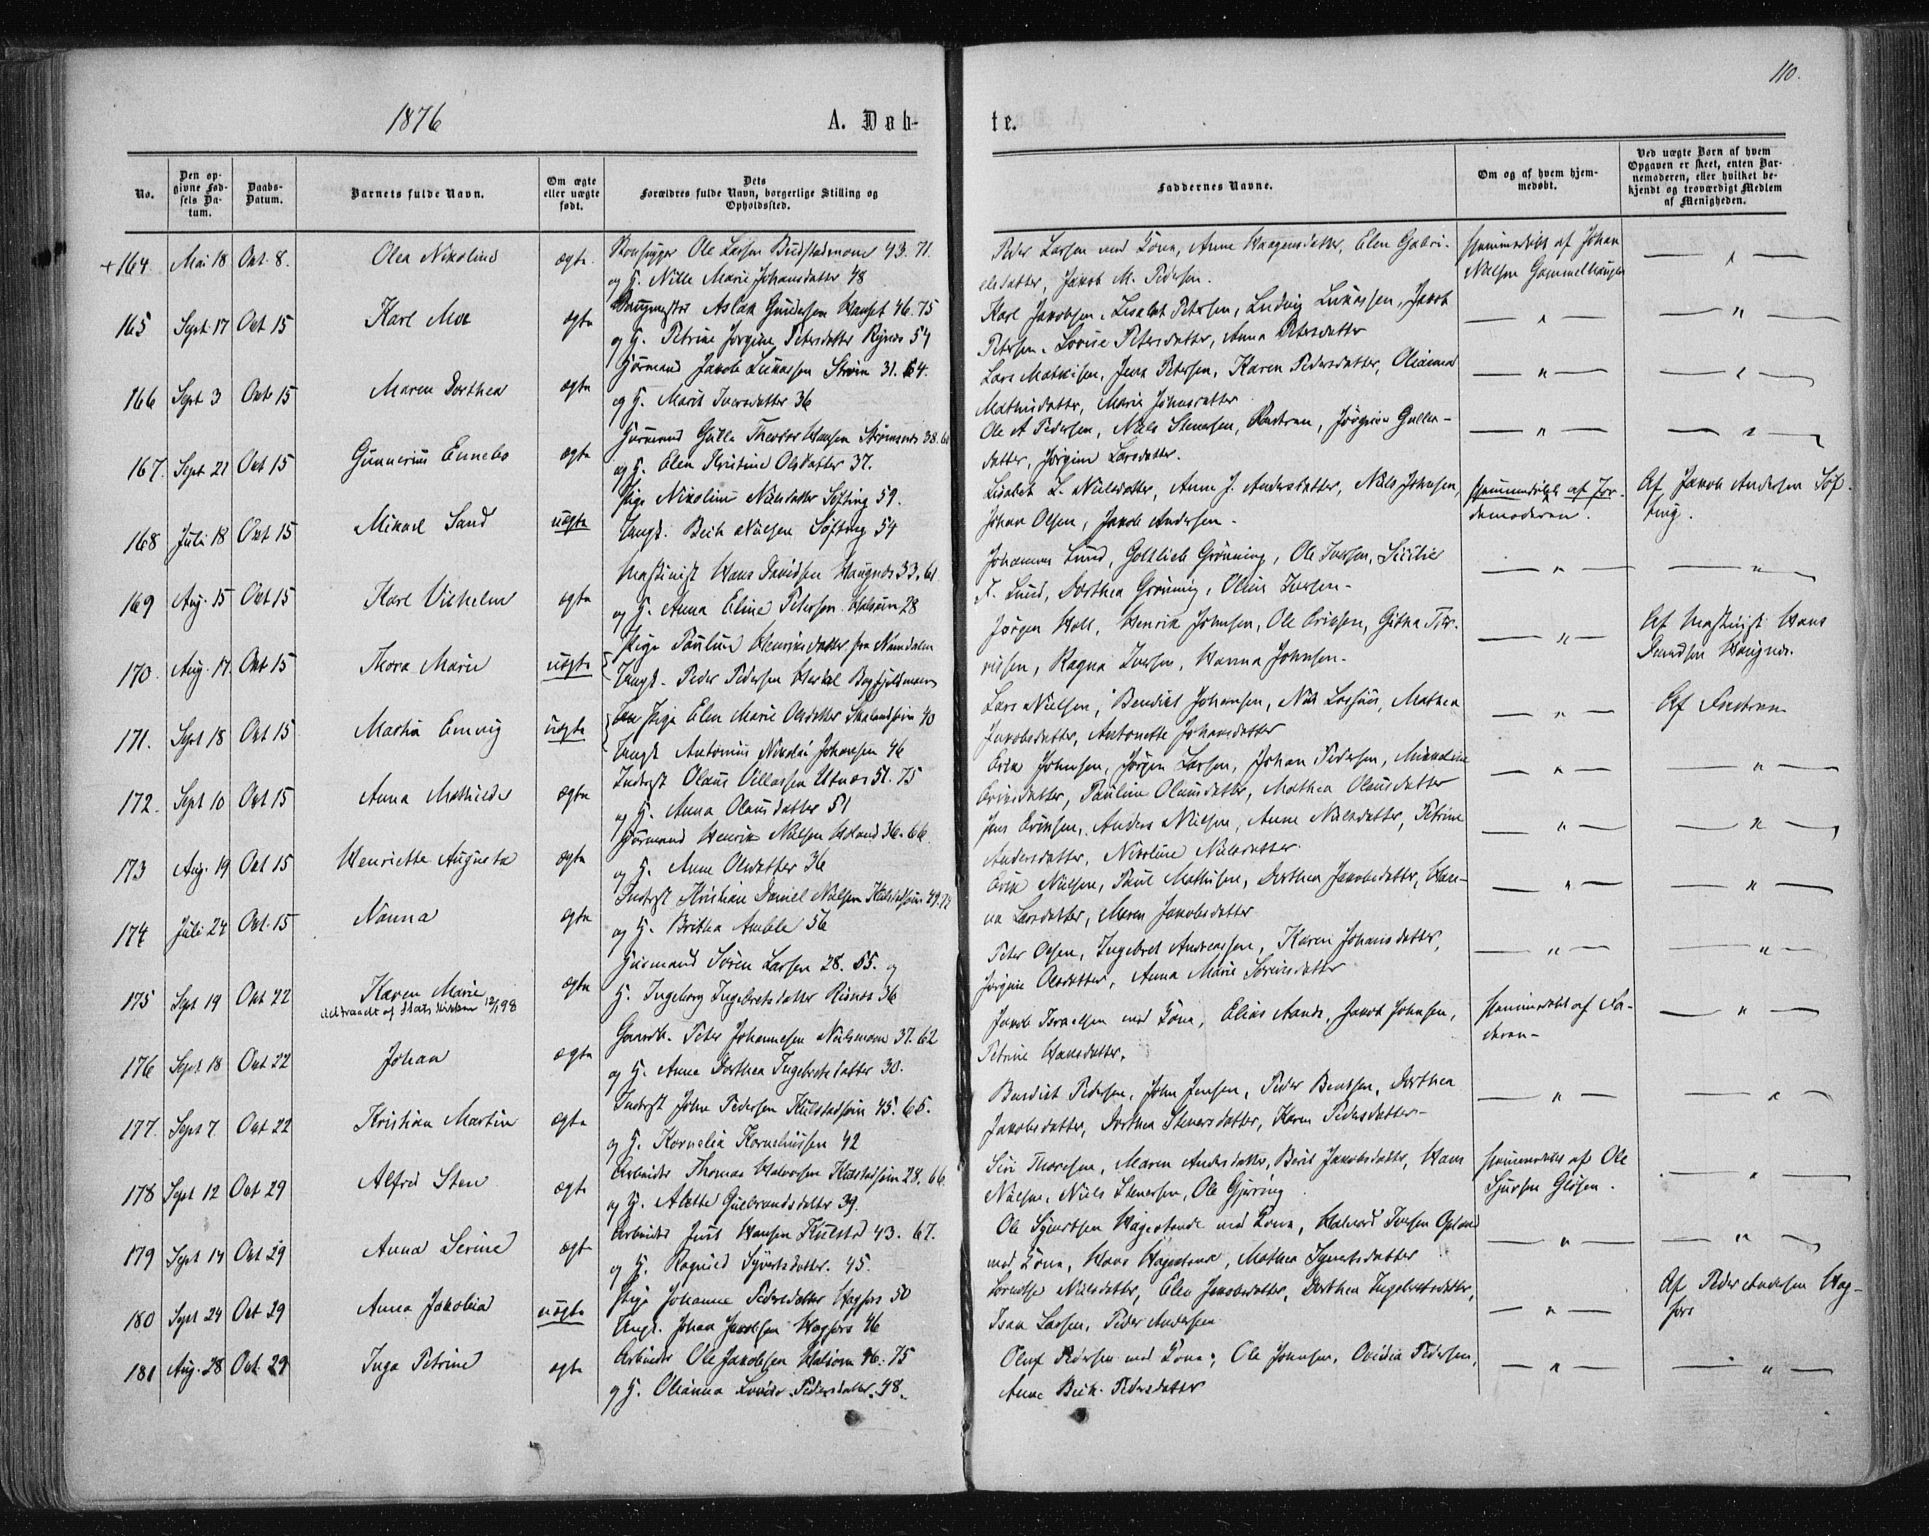 110.
1876
A. Døb-
te.
No.
Den op-
givne Fød-
sels Da-
tum.
Daabs-
Datum.
Barnets fulde Navn.
Om ægte
eller uægte
født.
Dets
Forældres fulde Navn, borgerlige Stilling og
Opholdssted.
Faddernes Navne.
Om og af hvem hjem-
medøbt.
Ved uægte Børn af hvem
Opgaven er skeet, enten Bar-
nemoderen, eller hvilket be-
kjendt og troværdigt Medlem
af Menigheden.
+164 Mai 18 Oct. 8. Olea Nikoline ægte. Ole Larsen 43. 71.
og H. Nille Marie Johansdatter 48
Peder Larsen med Kona, Anne Haagensdatter, Elen Gabri-
elsdatter, Jakob M. Pedersen.
Hjemmedøbt af Johan
Nielsen Gammelhaugen
165 Sept. 17 Oct 15 Karl Moe ægte Aslak Gundersen Hanset 46. 75
og H. Petrine Jørgine Petersdatter Rynes 54
Karl Jakobsen, Lisabet Petersen, Ludvig Lukassen, Jakob
Petersen, Lovise Petersdatter, Anna Petersdatter
166 Sept 3 Oct 15 Maren Dorthea ægte Gjørmand Jakob Lukassen Strøm 31. 64.
og H. Marit Iversdatter 36
Lars Mathisen, Jens Petersen, Karen Pedersdatter, Oleanna
Mathisdatter, Marie Johnsdatter
167. Sept 21 Oct 15 Gunnerius Ennebo ægte Theodor Hansen 38. 61
og H. Elen Kristine Olsdatter 37.
Ole A Pedersen, Niels Stenersen, Jørgine Gullen-
datter, Jørgine Larsdatter.
168 Juli 18 Oct 15 Mikael Sand uægte Pige Nikoline Nielsdatter Søfting 59.
Ungk. Beck Nielsen Søfting 54
Lisabet L. Nielsdatter, Anne J. Andersdatter, Niels Johnsen,
Johan Olsen, Jakob Andersen.
Hjemmedøbt af Jor-
demoderen.
Af Jakob Andersen Søf-
ting.
169 Aug. 15 Oct 15 Karl Vilhelm ægte Maskinist Hans Davidsen Haugnes 33. 61.
og H. Anna Eline Petersen Halsøen 28
Johannes Lund, Gottlieb Grønning, Ole Iversen, Sicilie
F. Lund, Dorthea Grønning, Olaus Iversen
170. Aug. 17. Oct 15 Thora Marie uægte Pige Pauline Henriksdatter fra Namdalen
Ungk. Peder Pedersen
Jørgen Holt, Henrik Johnsen, Ole Eriksen, Githa Iver-
sen, Ragna Iversen, Hanna Johnsen.
Af Maskinist Hans
Davidsen Haugnes.
171. Sept 18 Oct 15 Martin Emvig uægte Pige Elen Marie Olsdatter 40
Ungk. Antonius Nikolai Johansen 46
Lars Nielsen, Bendict Johansen, Mathea
Jakobsdatter, Antonette Johansdatter
172. Sept 10 Oct 15 Anna Mathilde ægte Inderst Olaus Villassen Utnes 51. 75
og H. Anna Olausdatter 51
Erik Johnsen, Jørgen Larsen, Johan Pedersen, Mikkeline
Eriksdatter, Pauline Olausdatter, Mathea Olausdatter
173 Aug. 19 Oct 15 Henriette Augusta ægte Gjørmand Henrik Nielsen 36. 66
og H. Anne Olsdatter 36
Jens Eriksen, Anders Nielsen, Anne Nielsdatter, Petrine
Andersdatter, Nikoline Nielsdatter.
174 Juli 24 Oct. 15 Nanna ægte Inderst Kristian Daniel Nielsen 49. 72
og H. Britha Amble 56
Erik Nielsen, Paul Mathisen, Dorthea Jakobsdatter, Han-
na Larsdatter, Maren Jakobsdatter
175 Sept 19 Oct 22 Karen Marie
udtraadt af Statskirken 12/1 98 ægte Søren Larsen 28. 55. og
H. Ingeborg Ingebretsdatter Risnes 36
Peter Olsen, Ingebret Andreassen, Karen Johansdatter,
Jørgine Olsdatter, Anna Marie Sørensdatter
176 Sept 18 Oct 22 Johan ægte Gaardb. Peter Johannesen Nilsmoen 37. 62
og H. Anne Dorthea Ingebretsdatter 30.
Jakob Israelsen med Kona, Elias Aande, Jakob Johnsen,
Petrine Hansdatter.
Hjemmedøbt af Fa-
deren
177. Sept 7 Oct 22 Kristian Martin ægte Inderst John Pedersen Kulstadsjøen 45. 65.
og H. Kornelia Korneliussen 42
Bendict Pedersen, John Jensen, Peder Bentsen, Dorthea
Jakobsdatter, Dorthea Stenersdatter, Karen Pedersdatter
178 Sept 12 Oct 29 Alfred Sten ægte Arbeider Thomas Halvorsen 28. 66.
og H. Alette Gulbrandsdatter 39.
Siri Thoresen, Maren Andersdatter, Berit Jakobsdatter, Hans
Nielsen, Niels Stenersen, Ole Gjøring
Hjemmedøbt af Ole
Sjursen Glosen.
179 Sept 14 Oct 29 Anna Serine ægte Arbeider Juul Hansen Kulsta 43. 67.
og H. Ragnild Syvertsdatter. 45.
Ole Syvertsen Hagestande med Kona, Halvard Iversen
med Kona, Hans Hagestande, Mathea Syvertsdatter
180 Sept 24 Oct 29 Anna Jakobia uægte Pige Johanne Pedersdatter Hagfors 50
Ungk. Johan Jakobsen Hagfors 46
Lorentse Nielsdatter, Elen Jakobsdatter, Dorthea Ingebretsdatter,
Isak Larsen, Peder Andersen
Af Peder Andersen Hag-
fors
181 Aug. 28 Oct. 29 Inga Petrine ægte Arbeider Ole Jakobsen Halsøen 46. 75
og H. Olianna Lovise Pedersdatter. 48.
Oluf Pedersen med Kona, Ole Johnsen, Ovidia Pedersen,
Anne Beck Pedersdatter